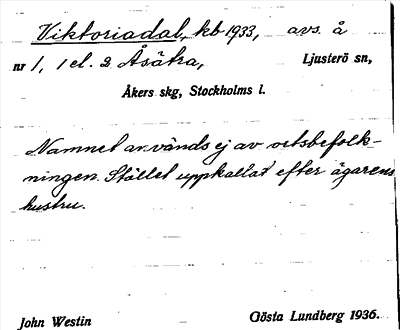 Viktoriadal, kb 1933, avs. å
nr 1, 1 el. 2 Åsätra, Ljusterö sn,
Åkers skg, Stockholms l.
Namnet användes ej av ortsbefolk-
ningen. Stället uppkallat efter ägarens
hustru.
John Westin Gösta Lundberg 1936.